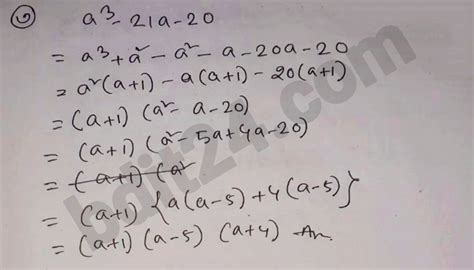 ৩ a³ - 21a - 20
= a³ + a² - a² - a - 20a - 20
= a²(a+1) - a(a+1) - 20(a+1)
= (a+1) (a² - a - 20)
= (a+1) (a² - 5a + 4a - 20)
= (a+1) (a²
= (a+1) {a(a-5) + 4(a-5)}
= (a+1) (a-5) (a+4) An.
bdit24.com